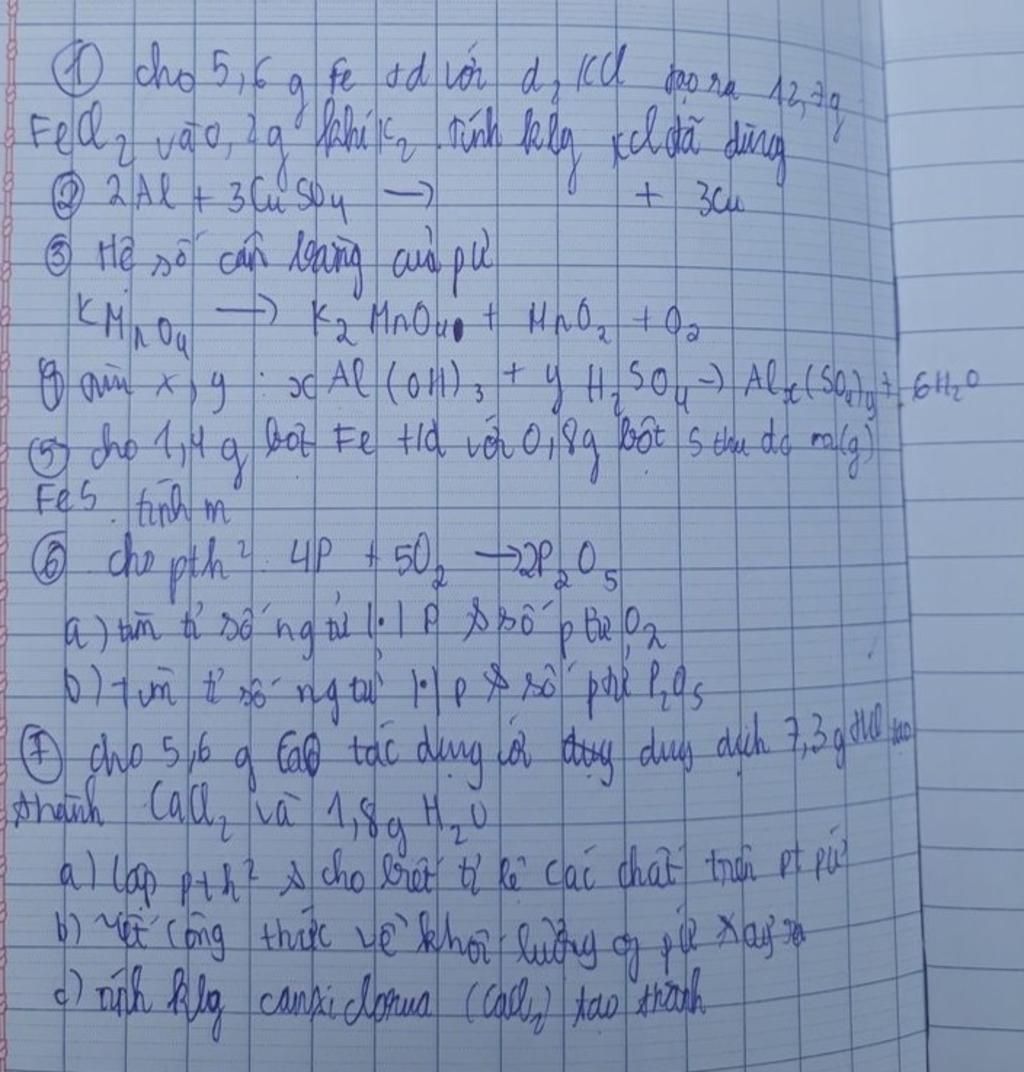 ① cho 5,6 g Fe td với d² HCl tạo ra 12,7g
FeCl₂ và 0,2g khí H₂. tính klg HCl đã dùng
② 2Al + 3CuSO₄ → + 3Cu
③ Hệ số cân bằng của pứ
KMnO₄ → K₂MnO₄ + MnO₂ + O₂
④ tìm x, y : xAl(OH)₃ + yH₂SO₄ → Alₓ(SO₄)y + 6H₂O
⑤ cho 1,4g bột Fe td với 0,8g bột S thu đc m(g)
FeS. tính m
⑥ cho pth² 4P + 5O₂ → 2P₂O₅
a) tìm tỉ số ngtử P & số ptử O₂
b) tìm tỉ số ngtử P & số ptử P₂O₅
⑦ cho 5,6 g CaO tác dụng với dung dịch 7,3g HCl tạo
thành CaCl₂ và 1,8g H₂O
a) lập pth² & cho biết tỉ lệ các chất trên pt pứ
b) viết công thức về khối lượng pứ xảy ra
c) tính klg canxi clorua (CaCl₂) tạo thành